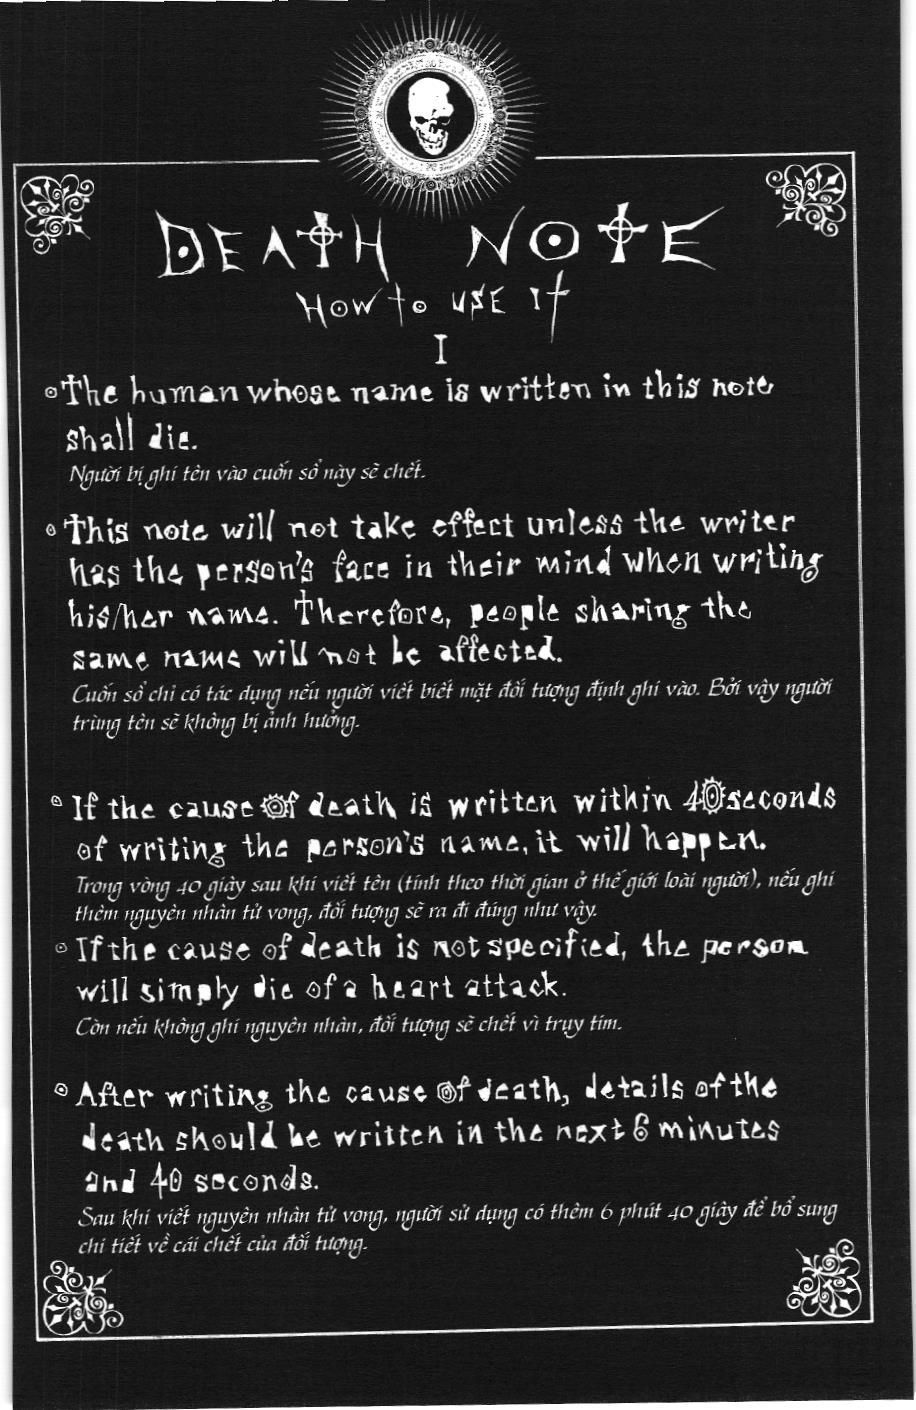 DEATH NOTE
HOW to USE It
I
The human whose name is written in this note
shall die.
Người bị ghi tên vào cuốn sổ này sẽ chết.
This note will not take effect unless the writer
has the person's face in their mind when writing
his/her name. Therefore, people sharing the
same name will not be affected.
Cuốn sổ chỉ có tác dụng nếu người viết biết mặt đối tượng định ghi vào. Bởi vậy người
trùng tên sẽ không bị ảnh hưởng.
If the cause of death is written within 40 seconds
of writing the person's name, it will happen.
Trong vòng 40 giây sau khi viết tên (tính theo thời gian ở thế giới loài người), nếu ghi
thêm nguyên nhân tử vong, đối tượng sẽ ra đi đúng như vậy.
If the cause of death is not specified, the person
will simply die of a heart attack.
Còn nếu không ghi nguyên nhân, đối tượng sẽ chết vì trụy tim.
After writing the cause of death, details of the
death should be written in the next 6 minutes
and 40 seconds.
Sau khi viết nguyên nhân tử vong, người sử dụng có thêm 6 phút 40 giây để bổ sung
chi tiết về cái chết của đối tượng.